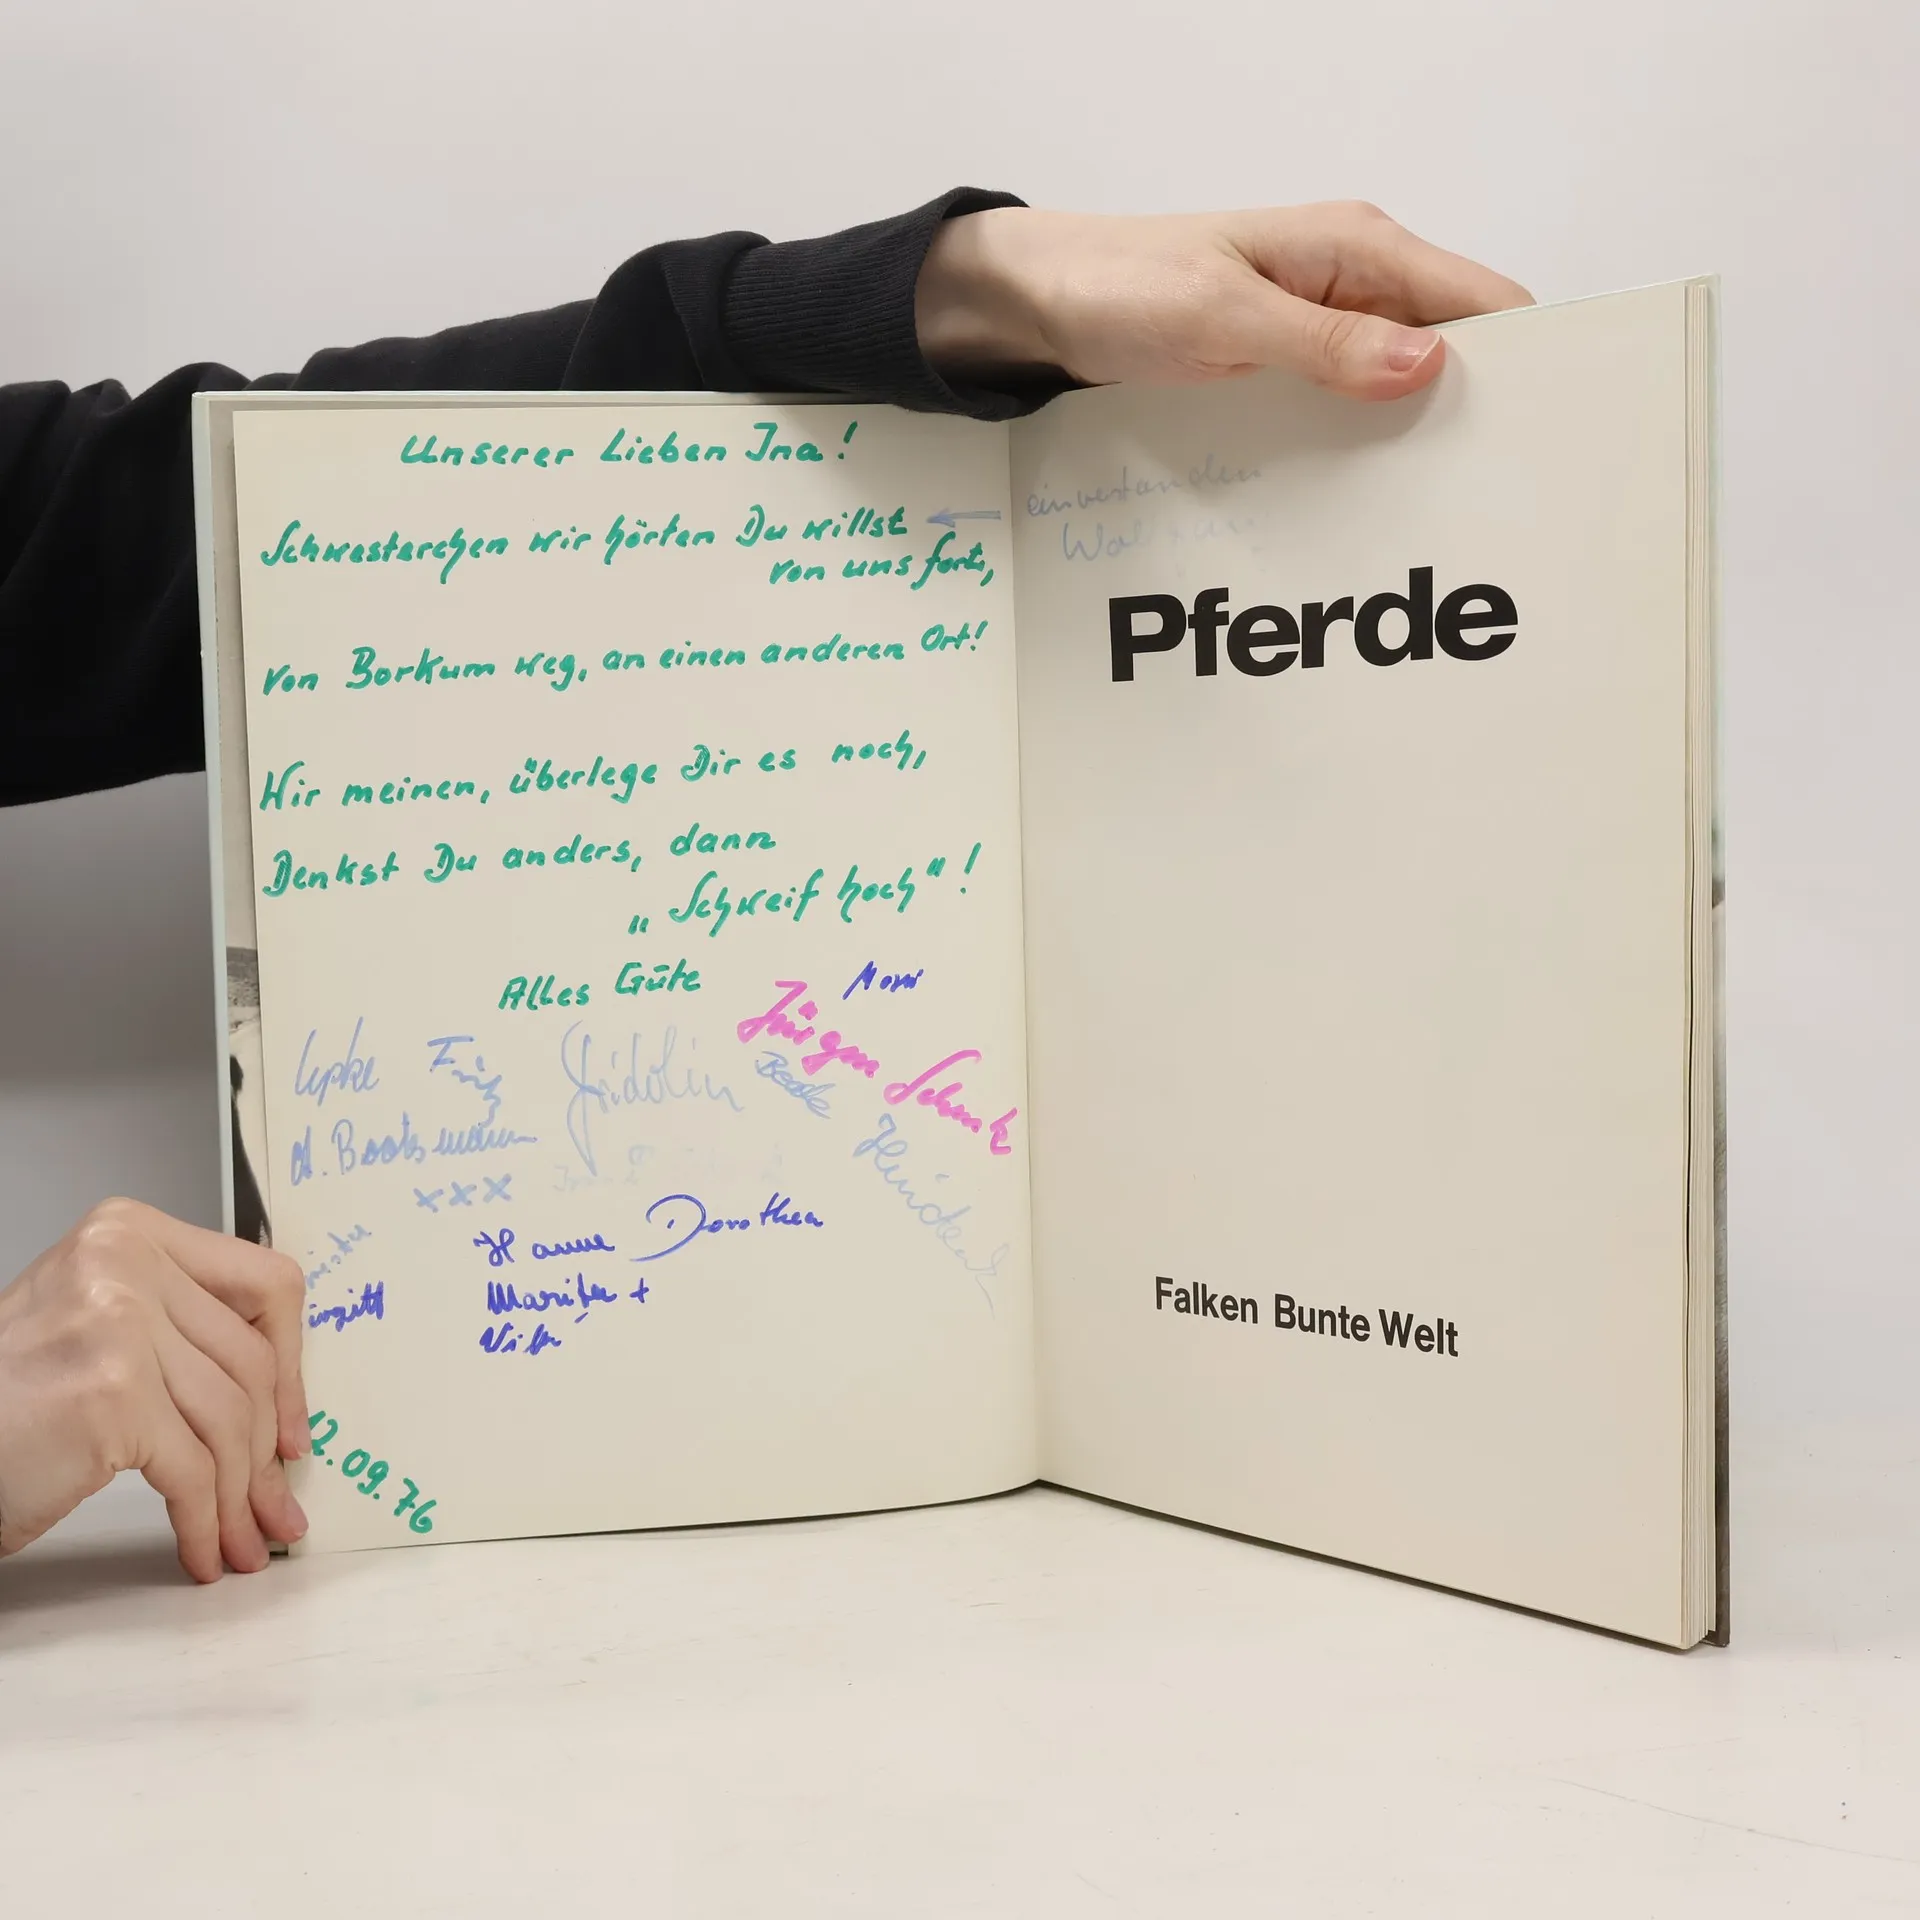 Unserer Lieben Ina!
Schwesterchen wir hörten Du willst
von uns fort,
von Borkum weg, an einen anderen Ort!
Wir meinen, überlege Dir es noch,
Denkst Du anders, dann
„Schweif hoch"!
Alles Gute
Jürgen Schunk
Fridolin
d. Bootsmann
xxx
Hanne Dorothea
Marita +
12.09.76
einverstanden
Pferde
Falken Bunte Welt